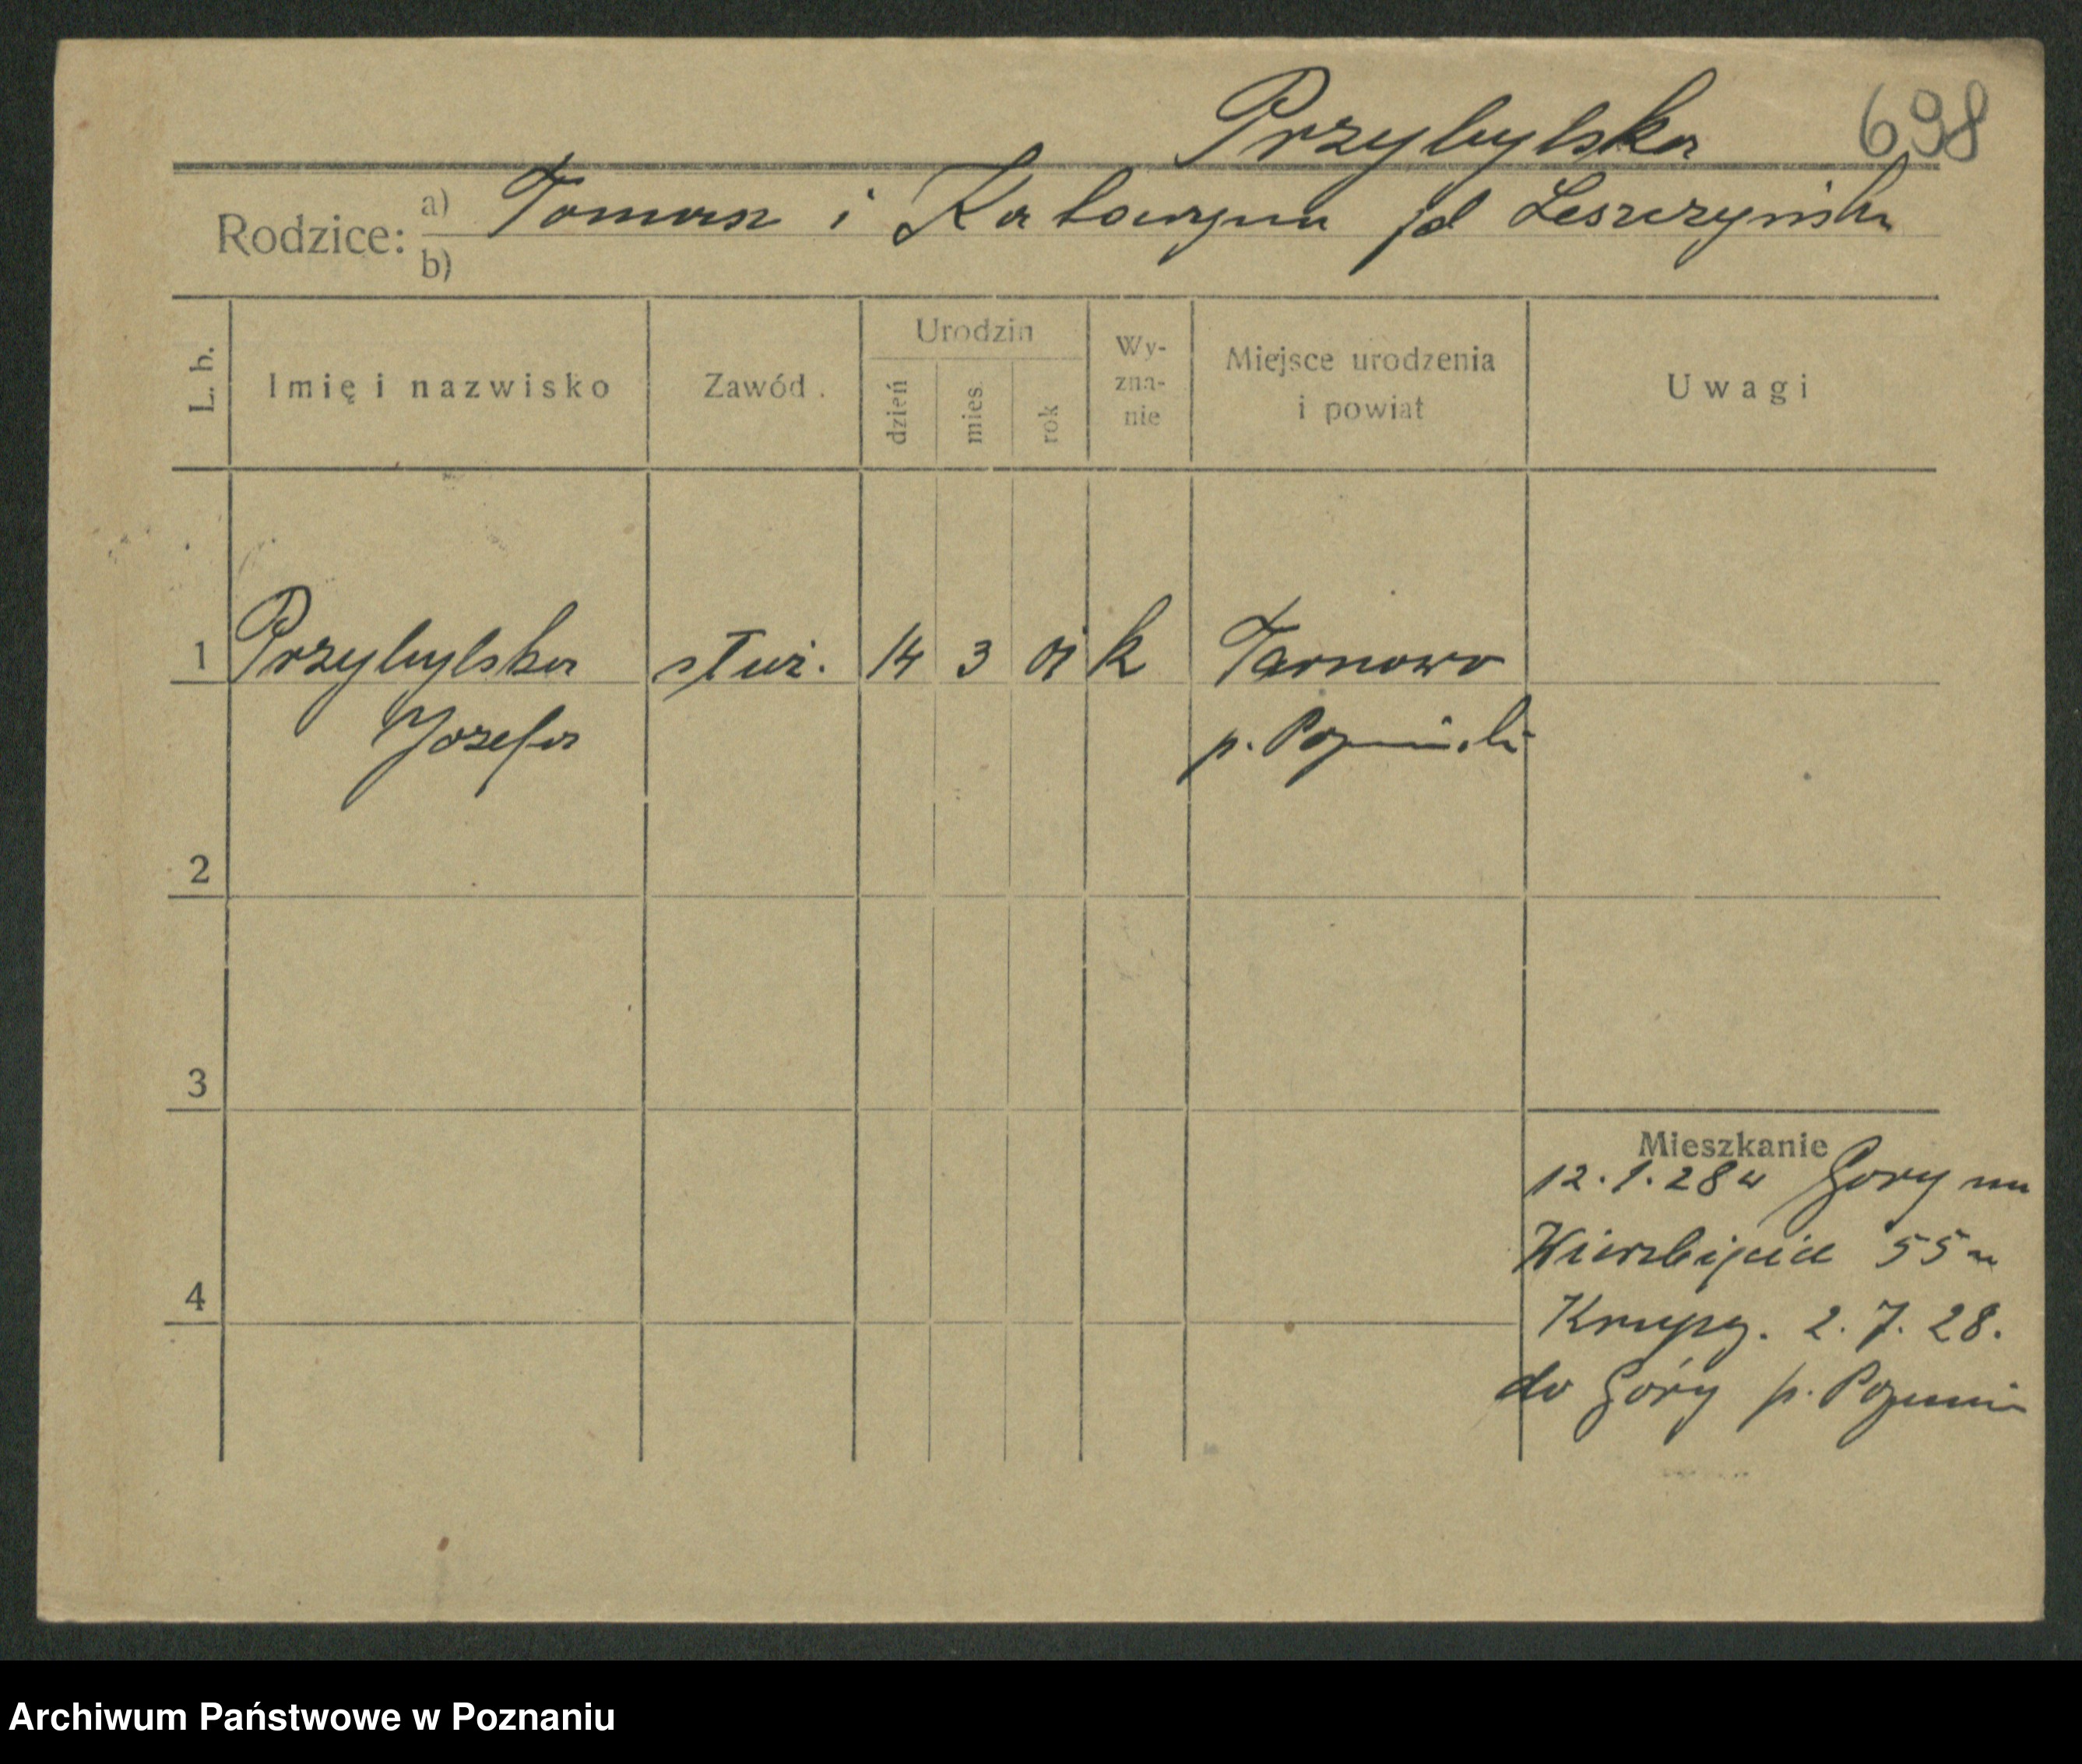 Przybylska 698
Rodzice: a) Tomasz i Katarzyna jd Leszczyńska
b)
L. b.
Imię i nazwisko
Zawód.
Urodzin
dzień
mies.
rok
Wy-
zna-
nie
Miejsce urodzenia
i powiat
Uwagi
1 Przybylska służ. 14 3 01 k Tarnowo
Jozefa p.
2
3
4
Mieszkanie
12.1.28 Gory na
55
2.7.28.
do Góry p.
Archiwum Państwowe w Poznaniu